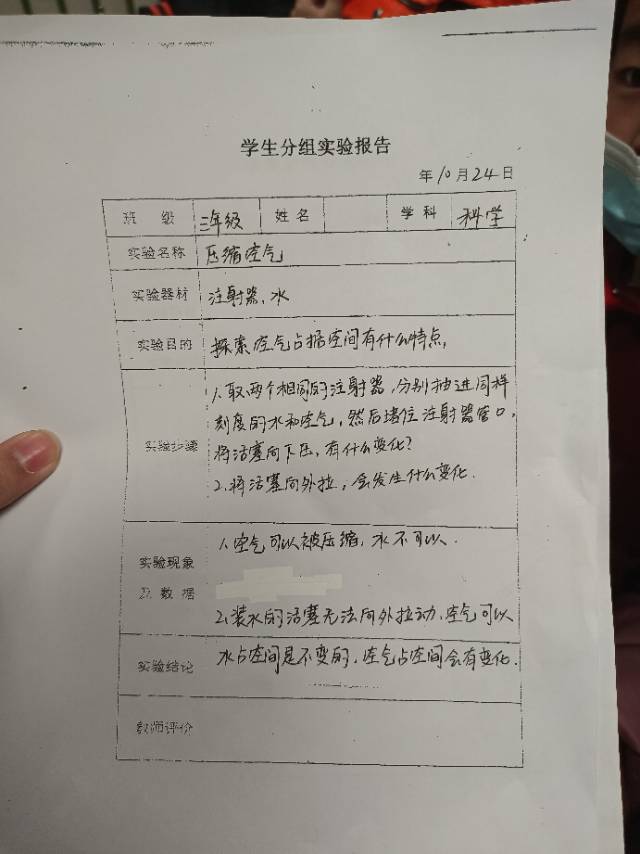 学生分组实验报告
年10月24日
班 级 三年级 姓 名 学 科 科学
实验名称 压缩空气
实验器材 注射器、水
实验目的 探索空气占据空间有什么特点。
实验步骤
1、取两个相同的注射器,分别抽进同样
刻度的水和空气,然后堵住注射器管口,
将活塞向下压,有什么变化?
2、将活塞向外拉,会发生什么变化.
实验现象
及 数 据
1、空气可以被压缩,水不可以.
2、装水的活塞无法向外拉动,空气可以
实验结论 水占空间是不变的,空气占空间会有变化.
教师评价